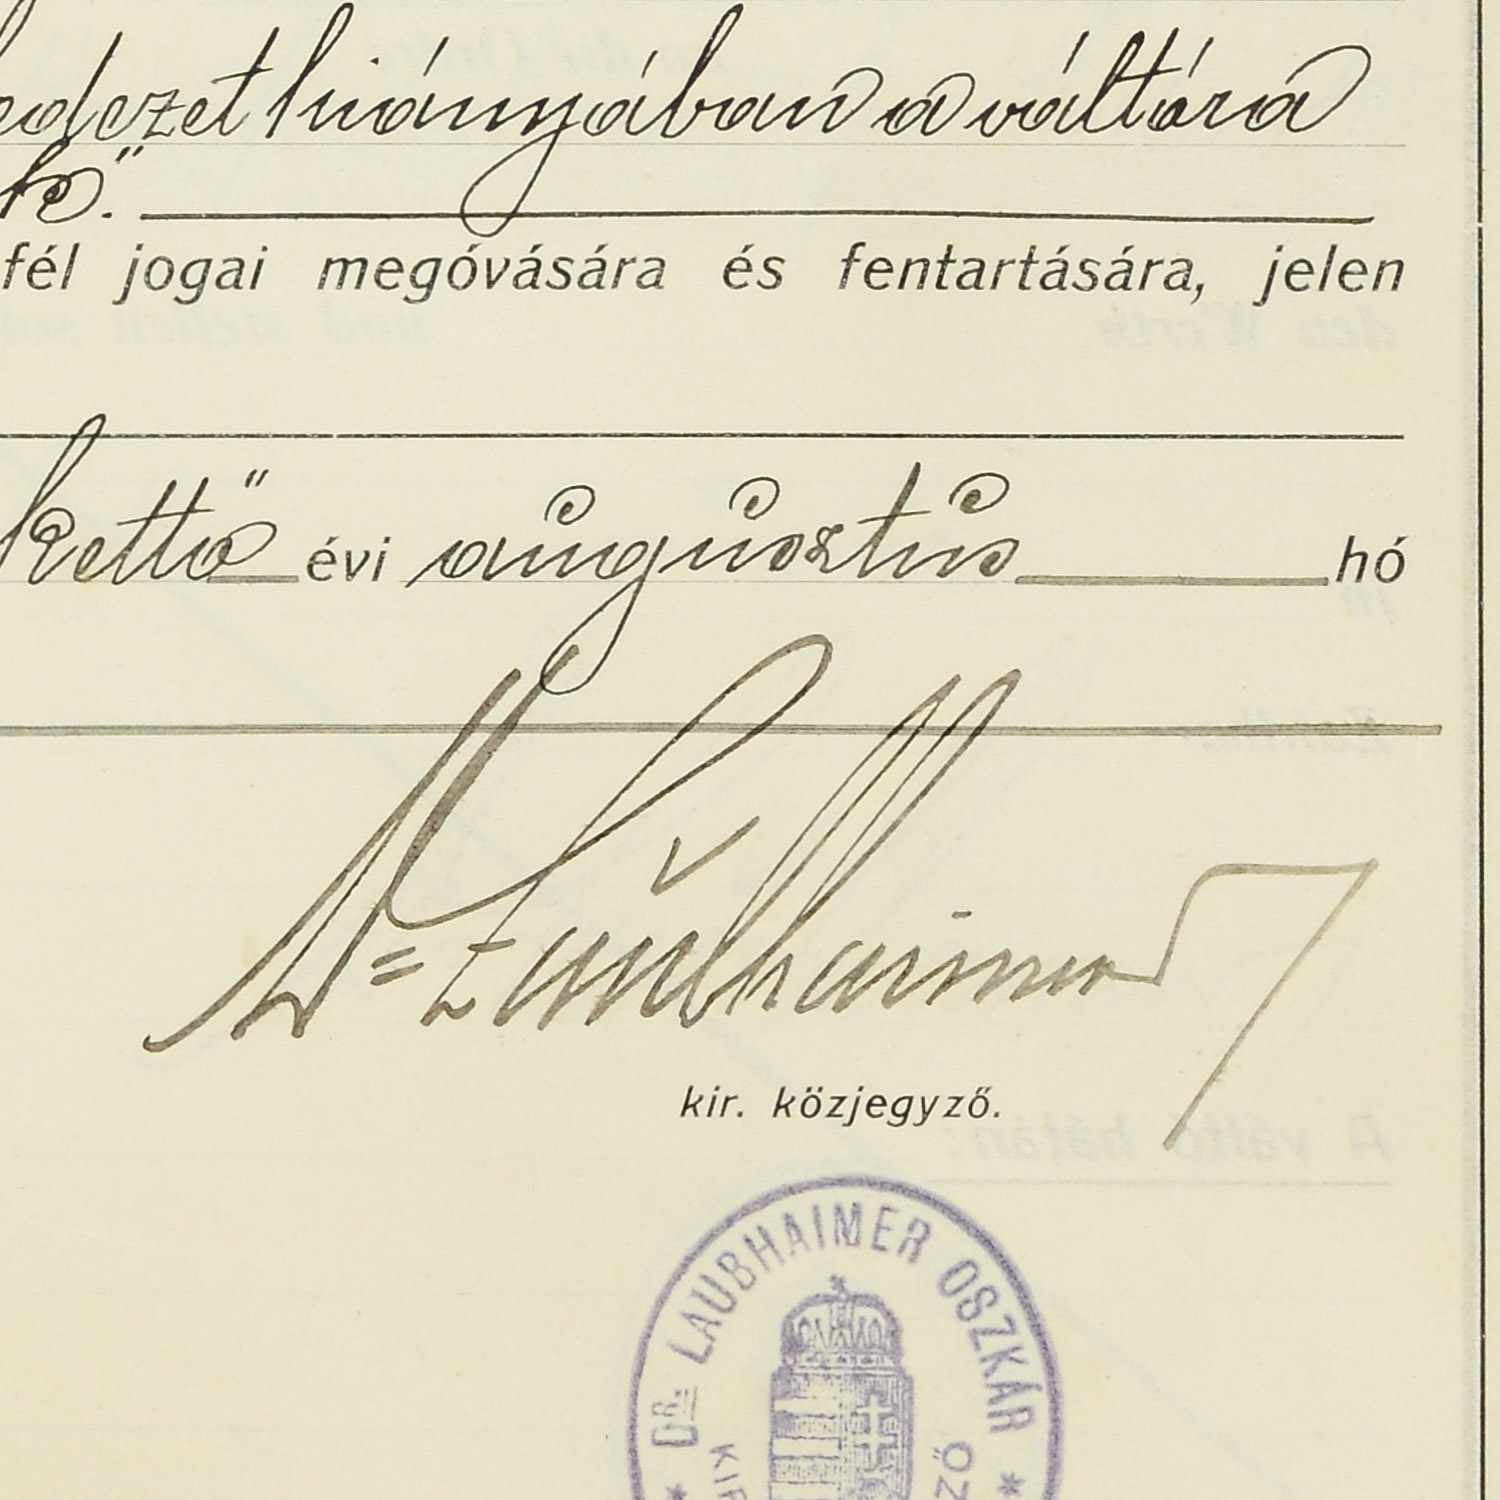 hiányában a váltóra
k."
fél jogai megóvására és fentartására, jelen
kettő évi augusztus hó
Dr Laubhaimer
kir. közjegyző.
DR. LAUBHAIMER OSZKÁR